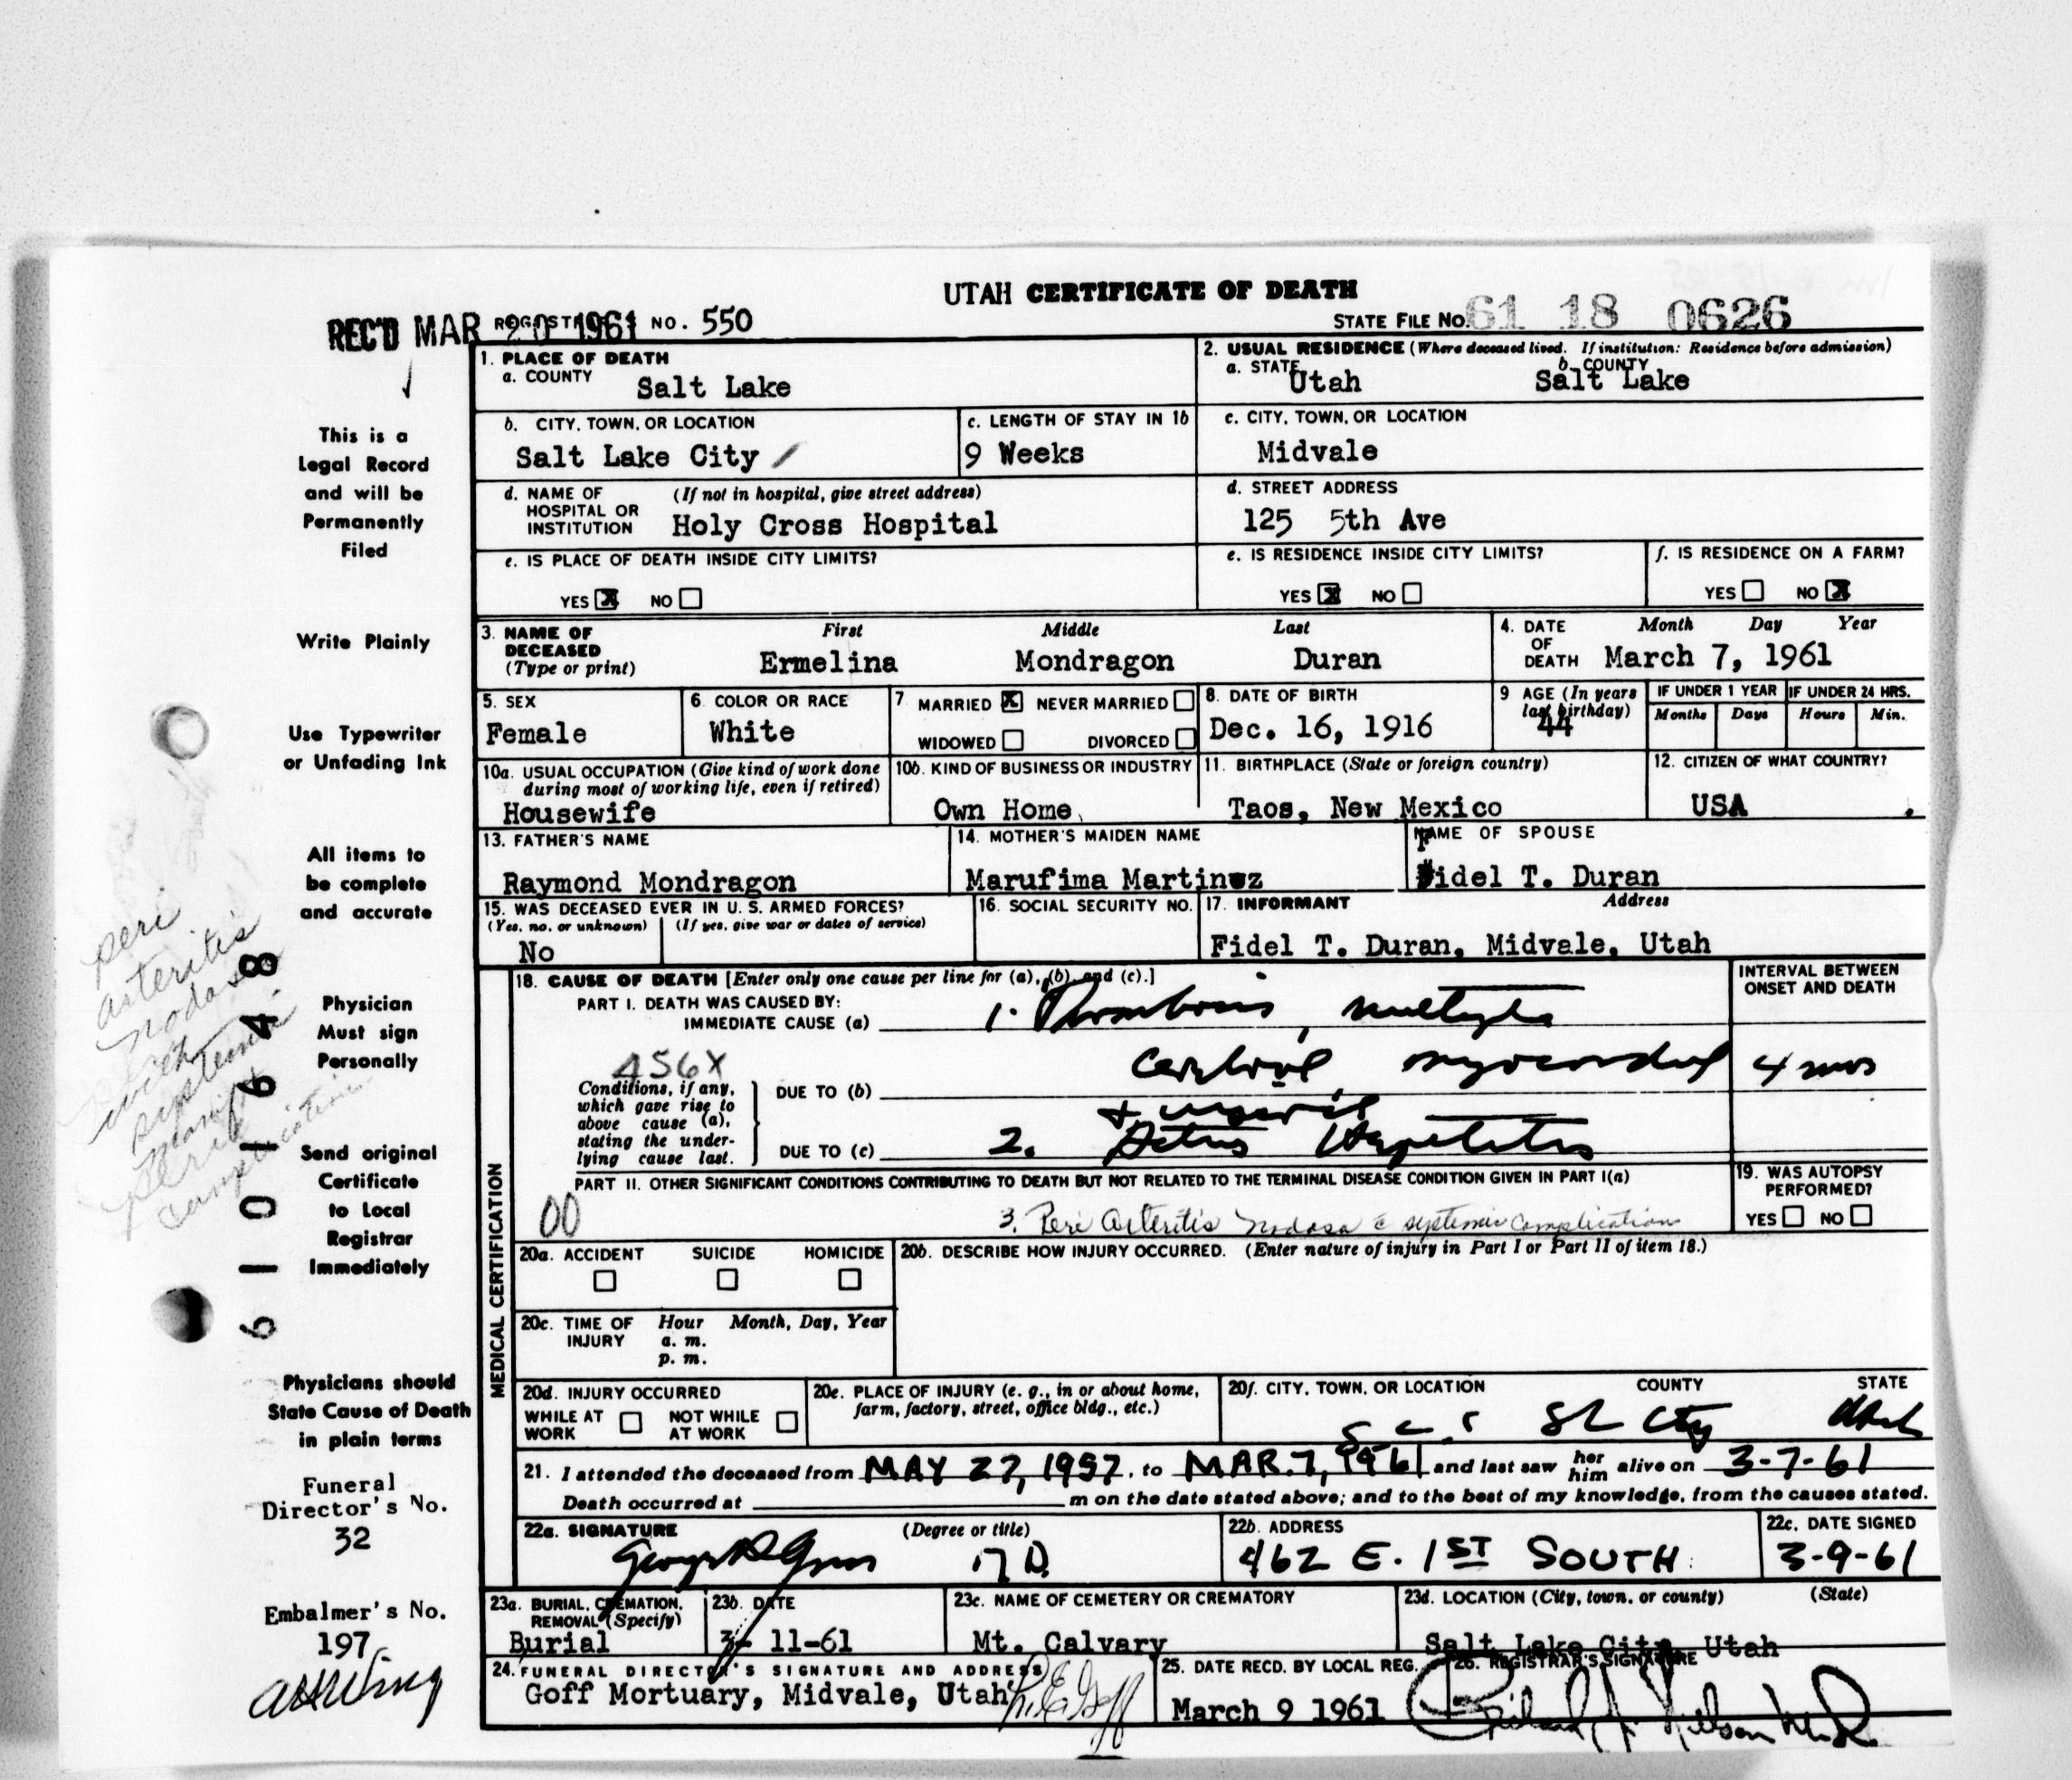 UTAH CERTIFICATE OF DEATH
REC'D MAR 20 1961 NO. 550
STATE FILE No. 61 18 0626
1. PLACE OF DEATH
a. COUNTY Salt Lake
2. USUAL RESIDENCE (Where deceased lived. If institution: Residence before admission)
a. STATE Utah b. COUNTY Salt Lake
b. CITY, TOWN, OR LOCATION Salt Lake City
c. LENGTH OF STAY IN 1b 9 Weeks
c. CITY, TOWN, OR LOCATION Midvale
d. NAME OF HOSPITAL OR INSTITUTION (If not in hospital, give street address) Holy Cross Hospital
d. STREET ADDRESS 125 5th Ave
e. IS PLACE OF DEATH INSIDE CITY LIMITS?
YES X NO
e. IS RESIDENCE INSIDE CITY LIMITS?
YES X NO
f. IS RESIDENCE ON A FARM?
YES NO X
3. NAME OF DECEASED (Type or print) First Middle Last
Ermelina Mondragon Duran
4. DATE OF DEATH Month Day Year
March 7, 1961
5. SEX Female
6. COLOR OR RACE White
7 MARRIED X NEVER MARRIED
WIDOWED DIVORCED
8. DATE OF BIRTH Dec. 16, 1916
9 AGE (In years last birthday) 44
IF UNDER 1 YEAR Months Days
IF UNDER 24 HRS. Hours Min.
10a. USUAL OCCUPATION (Give kind of work done during most of working life, even if retired) Housewife
10b. KIND OF BUSINESS OR INDUSTRY Own Home
11. BIRTHPLACE (State or foreign country) Taos, New Mexico
12. CITIZEN OF WHAT COUNTRY? USA
13. FATHER'S NAME Raymond Mondragon
14. MOTHER'S MAIDEN NAME Marufima Martinez
NAME OF SPOUSE Fidel T. Duran
15. WAS DECEASED EVER IN U. S. ARMED FORCES?
(Yes, no, or unknown) (If yes, give war or dates of service)
No
16. SOCIAL SECURITY NO.
17. INFORMANT Address
Fidel T. Duran, Midvale, Utah
18. CAUSE OF DEATH [Enter only one cause per line for (a), (b), and (c).]
INTERVAL BETWEEN ONSET AND DEATH
PART I. DEATH WAS CAUSED BY:
IMMEDIATE CAUSE (a) 1. Thrombosis, multiple
456X
cerebral, myocardial 4 mos
Conditions, if any, which gave rise to above cause (a), stating the underlying cause last.
DUE TO (b)
DUE TO (c) 2. Hepatitis
PART II. OTHER SIGNIFICANT CONDITIONS CONTRIBUTING TO DEATH BUT NOT RELATED TO THE TERMINAL DISEASE CONDITION GIVEN IN PART I(a)
00
3. Peri Arteritis Nodosa c systemic complication
19. WAS AUTOPSY PERFORMED?
YES NO
20a. ACCIDENT SUICIDE HOMICIDE
20b. DESCRIBE HOW INJURY OCCURRED. (Enter nature of injury in Part I or Part II of item 18.)
20c. TIME OF INJURY Hour Month, Day, Year
a. m.
p. m.
20d. INJURY OCCURRED
WHILE AT WORK NOT WHILE AT WORK
20e. PLACE OF INJURY (e. g., in or about home, farm, factory, street, office bldg., etc.)
20f. CITY, TOWN, OR LOCATION COUNTY STATE
SL City Utah
21. I attended the deceased from MAY 27, 1957, to MAR. 7, 1961 and last saw her him alive on 3-7-61
Death occurred at m on the date stated above; and to the best of my knowledge, from the causes stated.
22a. SIGNATURE (Degree or title)
M D.
22b. ADDRESS 462 E. 1ST SOUTH
22c. DATE SIGNED 3-9-61
23a. BURIAL, CREMATION, REMOVAL (Specify) Burial
23b. DATE 3-11-61
23c. NAME OF CEMETERY OR CREMATORY Mt. Calvary
23d. LOCATION (City, town, or county) (State)
Salt Lake City, Utah
24. FUNERAL DIRECTOR'S SIGNATURE AND ADDRESS
Goff Mortuary, Midvale, Utah
25. DATE RECD. BY LOCAL REG. March 9 1961
26. REGISTRAR'S SIGNATURE
MEDICAL CERTIFICATION
This is a
Legal Record
and will be
Permanently
Filed
Write Plainly
Use Typewriter
or Unfading Ink
All items to
be complete
and accurate
Physician
Must sign
Personally
Send original
Certificate
to Local
Registrar
Immediately
Physicians should
State Cause of Death
in plain terms
Funeral
Director's No.
32
Embalmer's No.
197
6 1 0 1 6 4 8
peri
arteritis
nodosa
with
systemic
complication